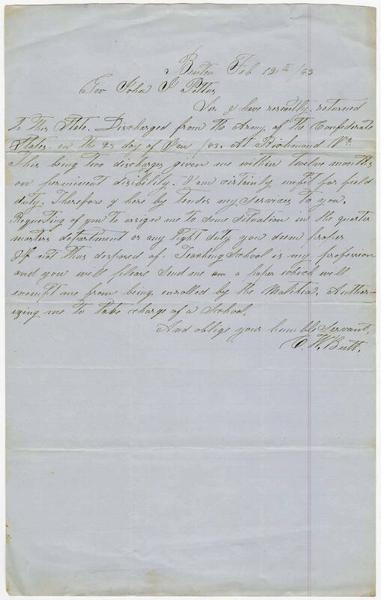 Benton Feb 12th /63
Gov John J Pettus
Sir I have recently returned
to this State. Discharged from the Army of the Confederate
States on the 23 day of Jan /63. At Richmond Va.
This being two discharges given me within twelve months
on perminent disibility. I am certainly unfit for field
duty. Therefore I here by tender my Services to you.
Requesting of you to assign me to some situation in the quarter
masters department or any light duty you deem proper
If not thus disposed of. Teaching School is my profession
and you will please Send me a paper which will
exempt me from being enrolled by the Malitia. Author-
izing me to take charge of a School.
And oblige your humble Servant,
Butt.